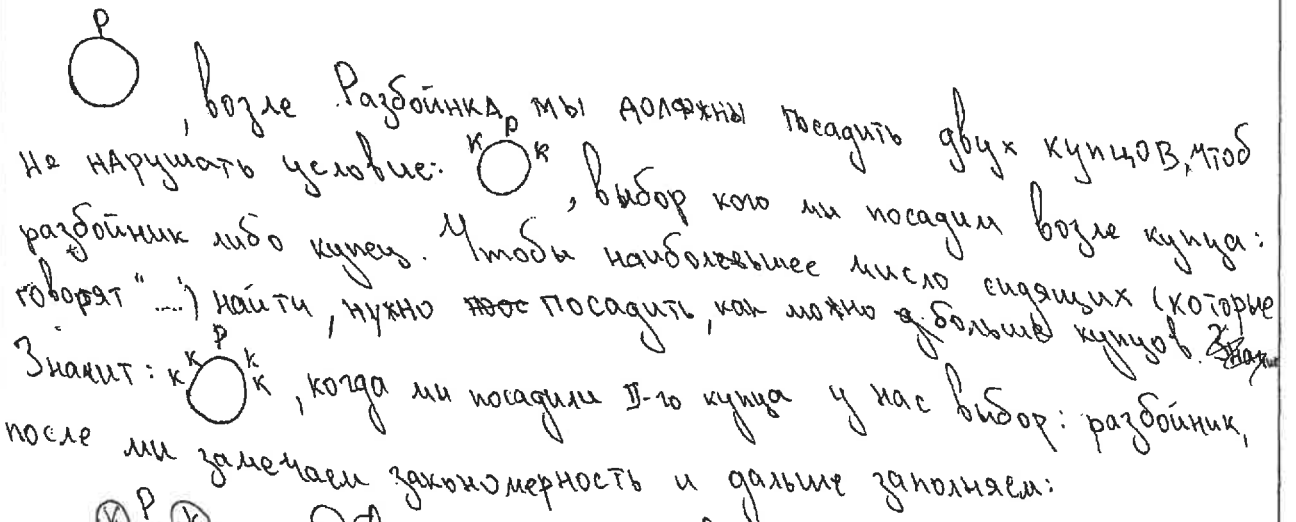 Р
, возле Разбойнка, мы должны посадить двух купцов, чтоб
не нарушать условие: К Р К , выбор кого ми посадим возле купца:
разбойник либо купец. Чтобы наибольшее число сидящих (которые
говорят "....") найти, нужно посадить, как можно больше купцов.
Значит: К К Р К К , когда ми посадили II-го купца у нас выбор: разбойник,
после ми замечаем закономерность и дальше заполняем:
К Р К